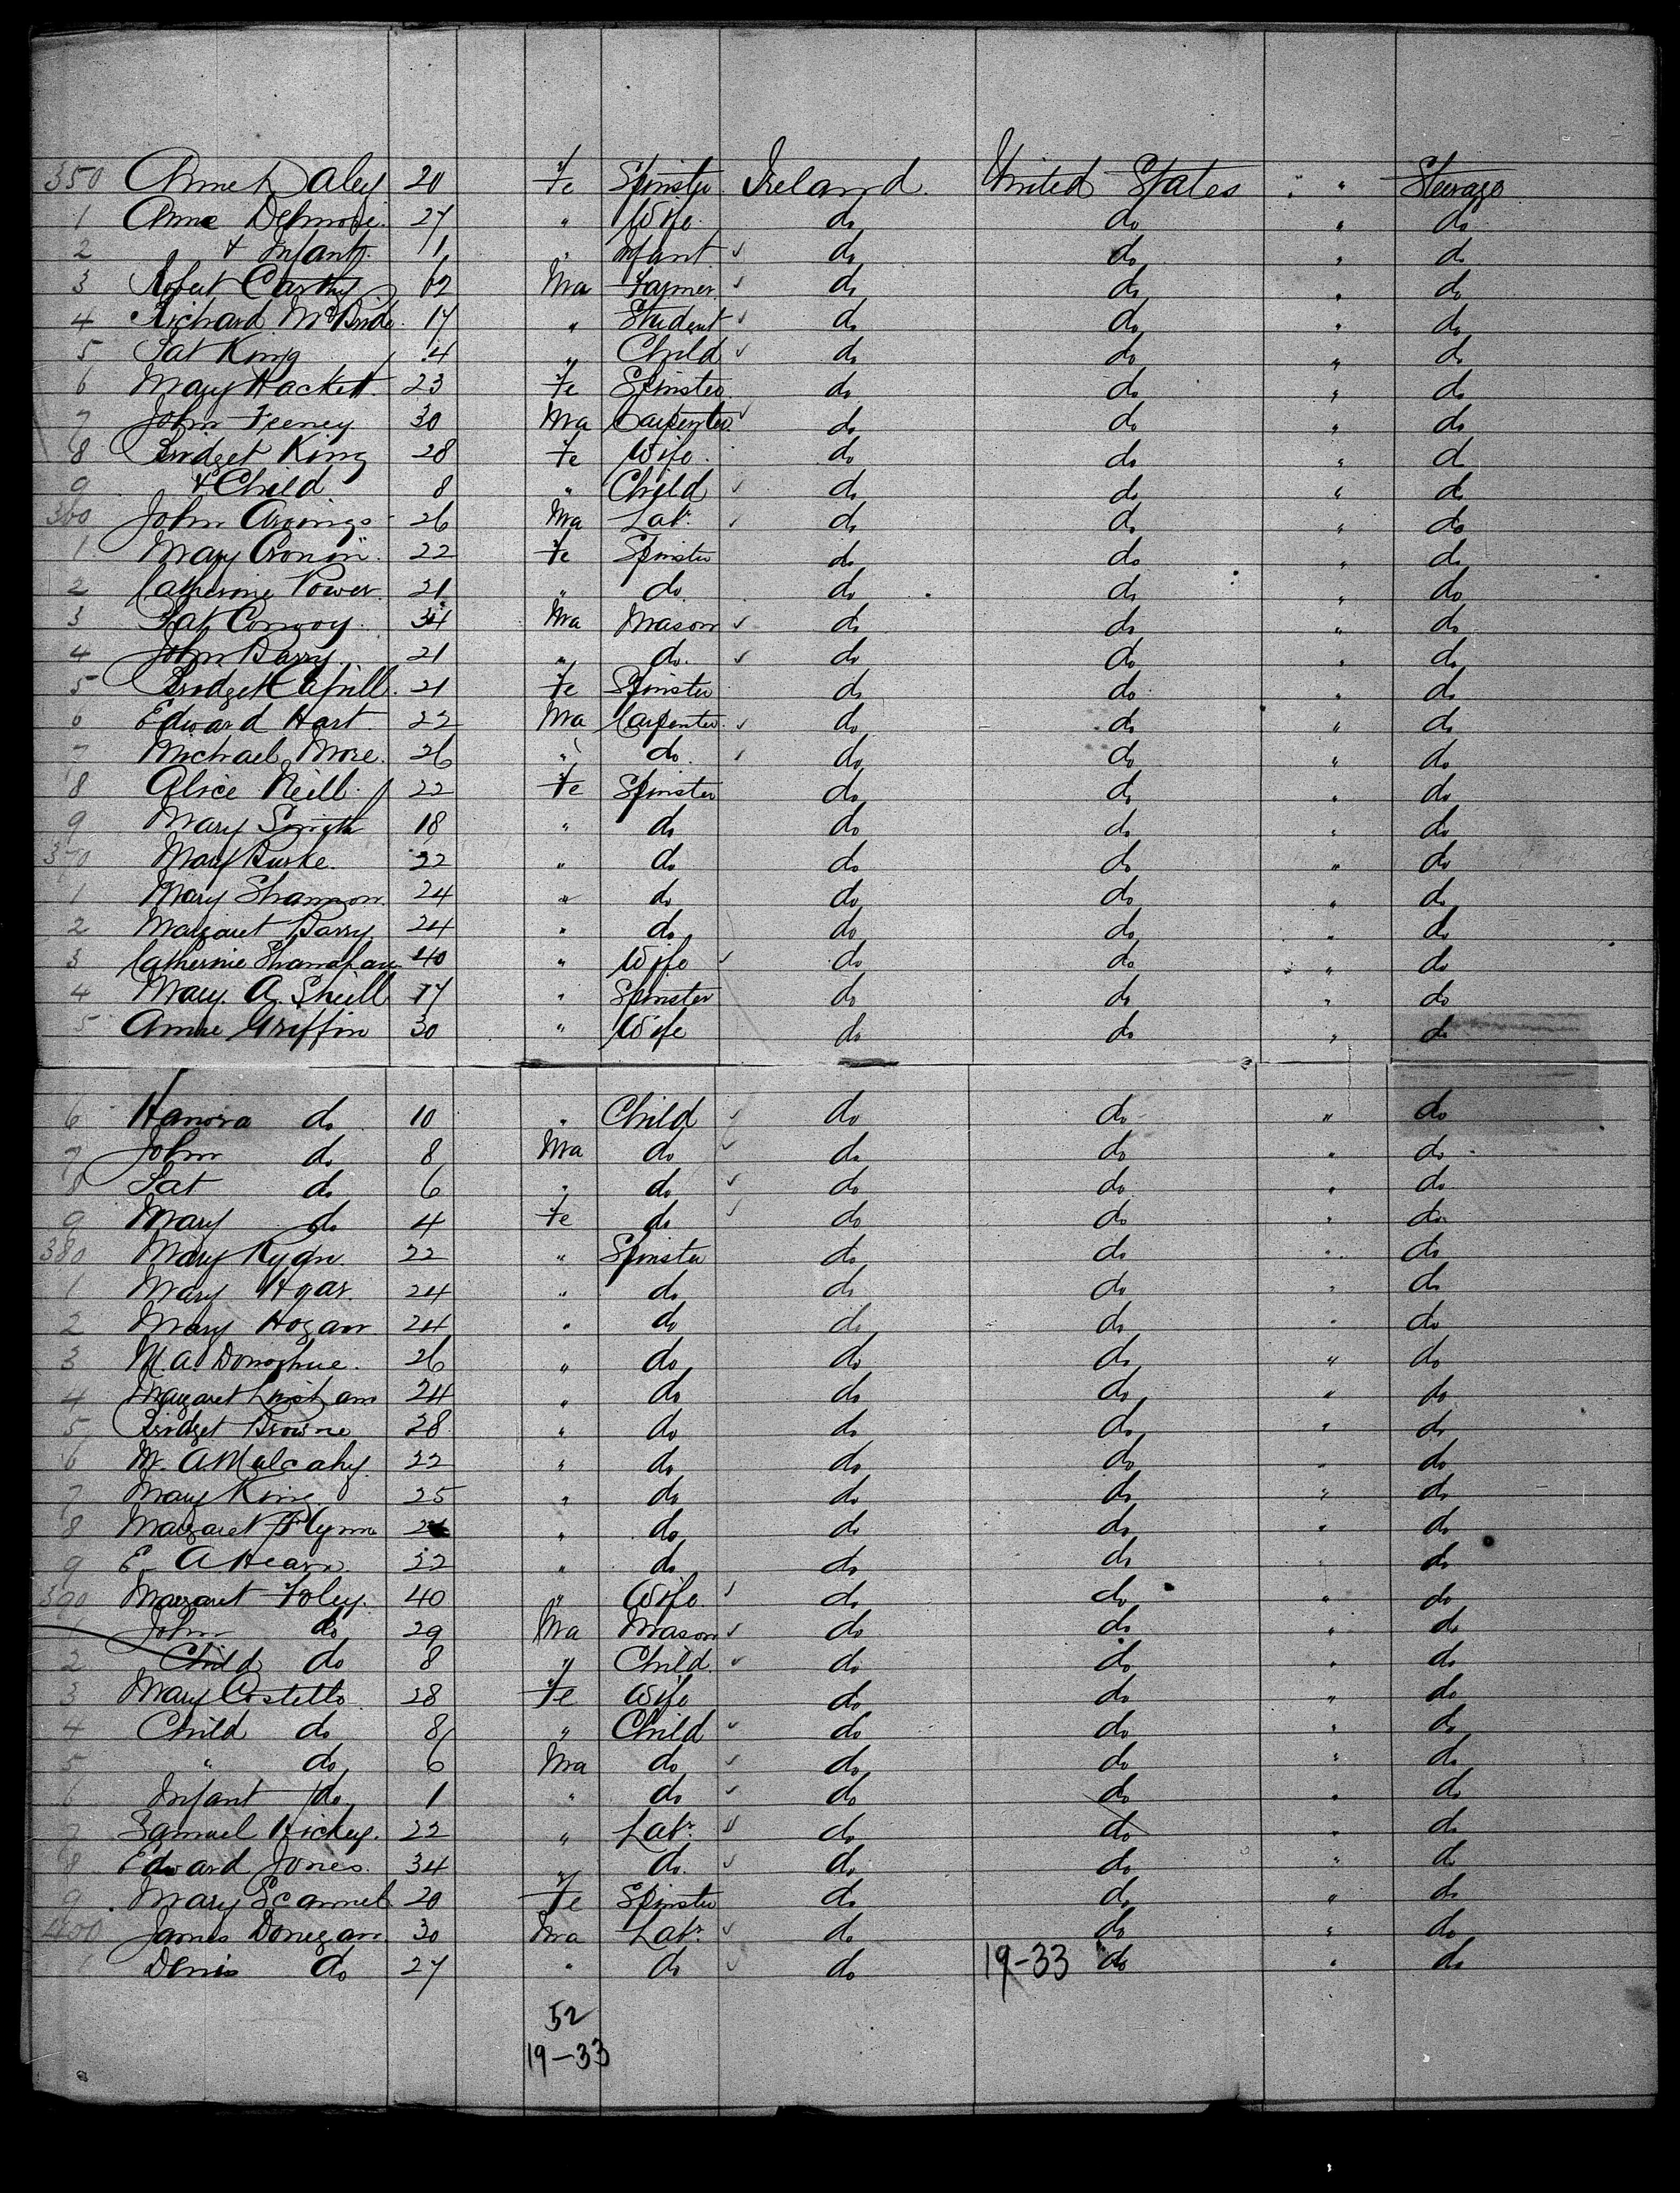 350 Anne Daley 20 Fe Spinster Ireland. United States " " Steerage
1 Anne 27 " Wife do do " do
2 & Infant 11 " Infant ✓ do do " do
3 Robert Carthy 62 Ma Farmer ✓ do do " do
4 Richard McBride 17 " Student ✓ do do " do
5 Pat King 4 " Child ✓ do do " do
6 Mary Hackett 23 Fe Spinster do do " do
7 John Feeney 30 Ma Carpenter ✓ do do " do
8 Bridget King 28 Fe Wife do do " do
9 & Child 8 " Child ✓ do do " do
360 John 26 Ma Labr ✓ do do " do
1 Mary Cronin 22 Fe Spinster do do " do
2 Catherine Power 21 " do do do " do
3 Pat Conroy 34 Ma Mason ✓ do do " do
4 John Barry 21 " do ✓ do do " do
5 Bridget 21 Fe Spinster do do " do
6 Edward Hart 22 Ma Carpenter ✓ do do " do
7 Michael More 26 " do ✓ do do " do
8 Alice Neill 22 Fe Spinster do do " do
9 Mary Smith 18 " do do do " do
370 Mary Burke 22 " do do do " do
1 Mary Shannon 24 " do do do " do
2 Margaret Barry 24 " do do do " do
3 Catherine Shanahan 40 " Wife ✓ do do " do
4 Mary A. Shiell 17 " Spinster do do " do
5 Anne Griffin 30 " Wife do do " do
6 Hanora do 10 " Child ✓ do do " do
7 John do 8 Ma do ✓ do do " do
8 Pat do 6 " do ✓ do do " do
9 Mary do 4 Fe do ✓ do do " do
380 Mary Ryan 22 " Spinster do do " do
1 Mary 24 " do do do " do
2 Mary Hogan 24 " do do do " do
3 M. A. Donoghue 26 " do do do " do
4 Margaret 24 " do do do " do
5 Bridget Browne 28 " do do do " do
6 M. A Malcahy 22 " do do do " do
7 Mary King 25 " do do do " do
8 Margaret Flynn " do do do " do
9 E AHearn 32 " do do do " do
390 Margaret Foley 40 " Wife ✓ do do " do
1 John do 29 Ma Mason ✓ do do " do
2 Child do 8 " Child ✓ do do " do
3 Mary Costello 28 Fe Wife do do " do
4 Child do 8 " Child ✓ do do " do
5 " do 6 Ma do ✓ do do " do
6 Infant do 1 " do ✓ do do " do
7 Samuel Hickey 22 " Labr ✓ do do " do
8 Edward Jones 34 " do ✓ do do " do
9 Mary Scannel 20 Fe Spinster do do " do
400 James Donegan 30 Ma Labr ✓ do do " do
1 Denis do 27 " do ✓ do 19-33 do " do
52
19-33